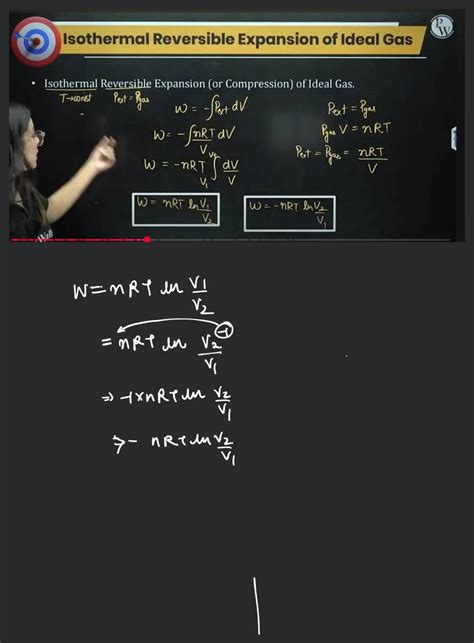 Isothermal Reversible Expansion of Ideal Gas
PW
• Isothermal Reversible Expansion (or Compression) of Ideal Gas.
T→const Pext = Pgas
W = -∫Pext dV
W = -∫nRT/V dV
W = -nRT ∫V1 V2 dV/V
W = nRT ln V1/V2
W = -nRT ln V2/V1
Pext = Pgas
Pgas V = nRT
Pext = Pgas = nRT/V
W = nRT ln V1/V2
= nRT ln V2/V1 -1
⇒ -1×nRT ln V2/V1
⇒ - nRT ln V2/V1